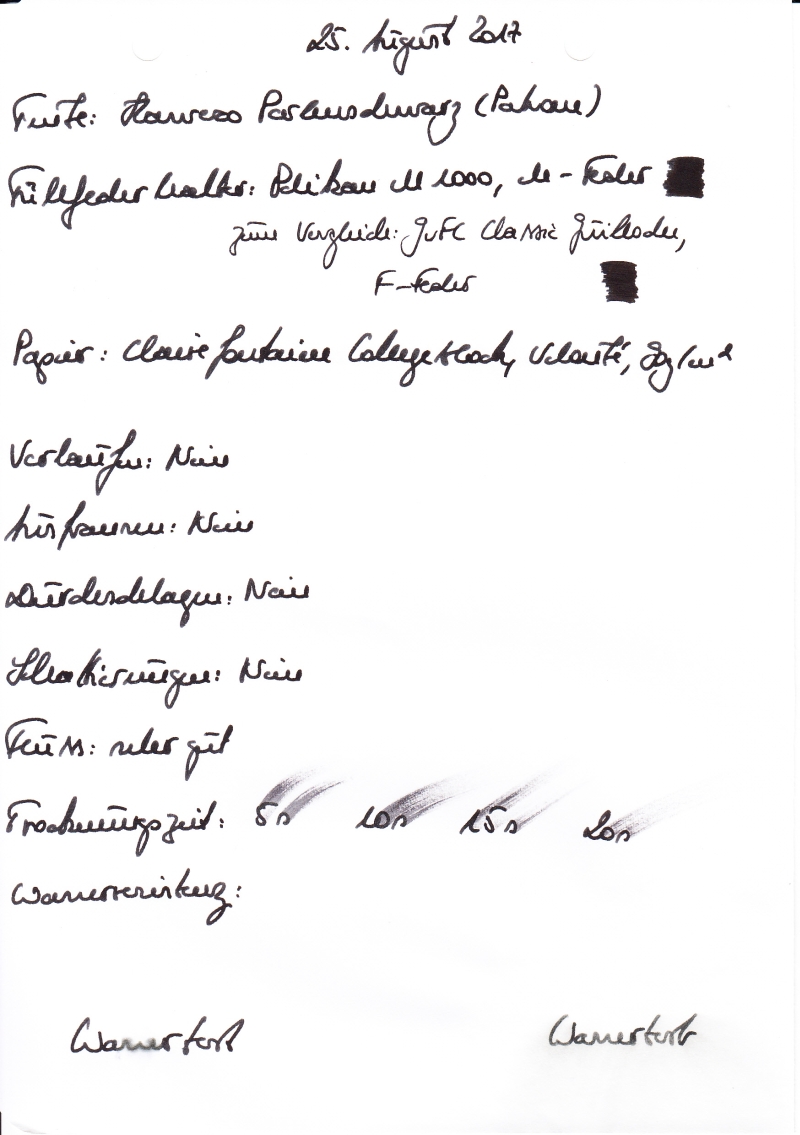 25. August 2017
Tinte: Florenso Parlusschwarz (Pakou)
Füllfederhalter: Pelikan M 1000, M-Feder
zum Vergleich: GvFC Classic Grenadill,
F-Feder
Papier: Clairefontaine Collegeblock, Velouté, 90g/m²
Verlaufen: Nein
Ausfransen: Nein
Durchschlagen: Nein
Schattierungen: Nein
Fluss: sehr gut
Trocknungszeit: 5s 10s 15s 20s
Wassereinwirkung:
Wassertest Wassertest